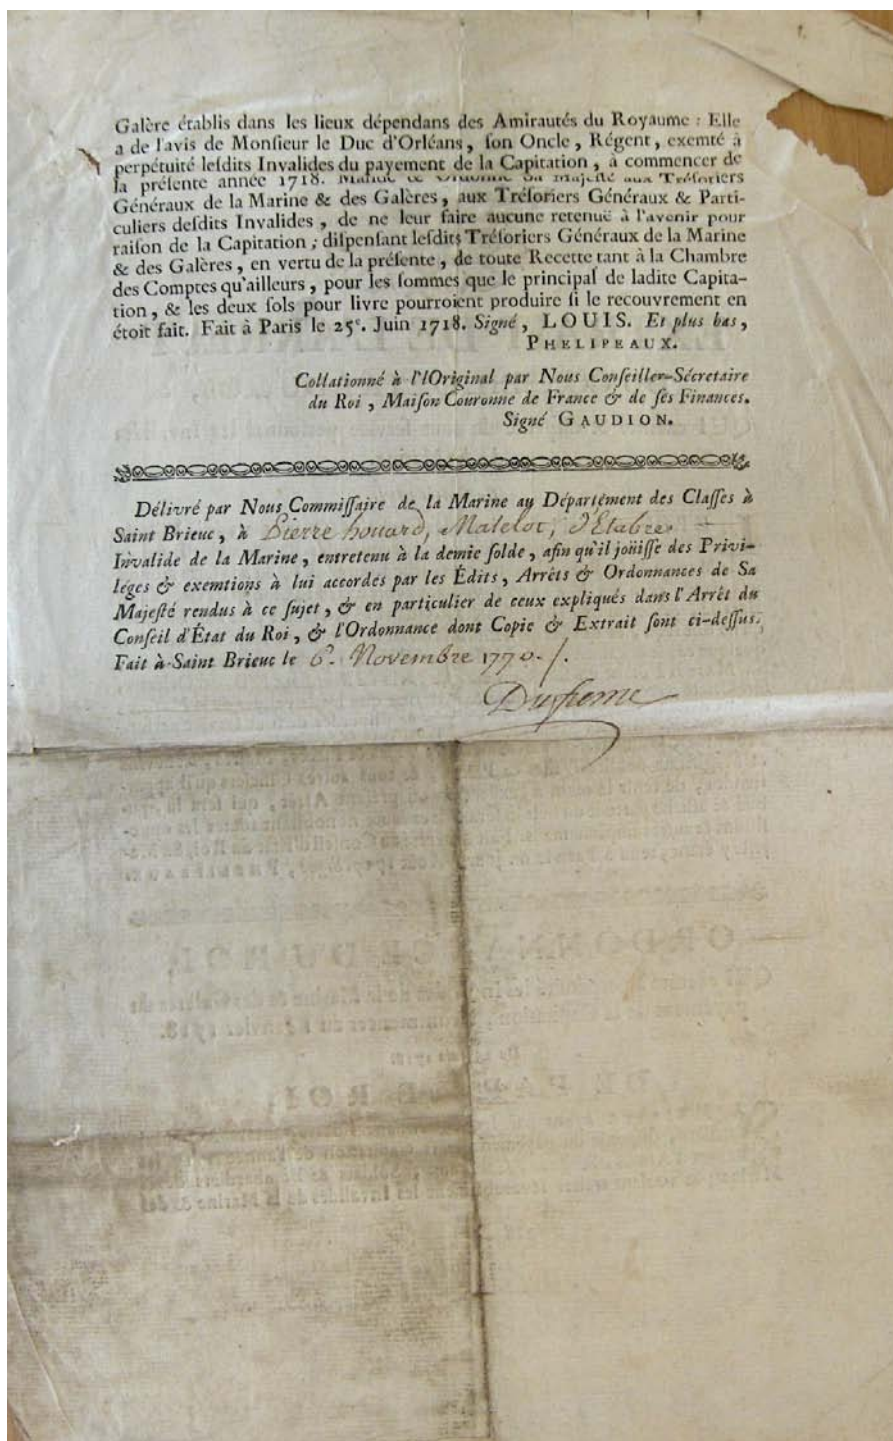 Galère établis dans les lieux dépendans des Amirautés du Royaume : Elle
a de l'avis de Monſieur le Duc d'Orléans, ſon Oncle, Régent, exemté à
perpétuité leſdits Invalides du payement de la Capitation, à commencer de
la préſente année 1718. Mande & Ordonne Sa Majeſté aux Tréſoriers
Généraux de la Marine & des Galères, aux Tréſoriers Généraux & Parti-
culiers deſdits Invalides, de ne leur faire aucune retenuë à l'avenir pour
raiſon de la Capitation ; diſpenſant leſdits Tréſoriers Généraux de la Marine
& des Galères, en vertu de la préſente, de toute Recette tant à la Chambre
des Comptes qu'ailleurs, pour les ſommes que le principal de ladite Capita-
tion, & les deux ſols pour livre pourroient produire ſi le recouvrement en
étoit fait. Fait à Paris le 25e. Juin 1718. Signé, LOUIS. Et plus bas,
PHELIPEAUX.
Collationné à l'lOriginal par Nous Conſeiller-Sécretaire
du Roi, Maiſon Couronne de France & de ſes Finances.
Signé GAUDION.
Délivré par Nous Commiſſaire de la Marine au Département des Claſſes à
Saint Brieuc, à Pierre houard, Matelot, d'Etables
Invalide de la Marine, entretenu à la demie ſolde, afin qu'il joüiſſe des Privi-
léges & exemtions à lui accordés par les Édits, Arrêts & Ordonnances de Sa
Majeſté rendus à ce ſujet, & en particulier de ceux expliqués dans l'Arrêt du
Conſeil d'État du Roi, & l'Ordonnance dont Copie & Extrait ſont ci-deſſus.
Fait à Saint Brieuc le 6e. Novembre 1770.